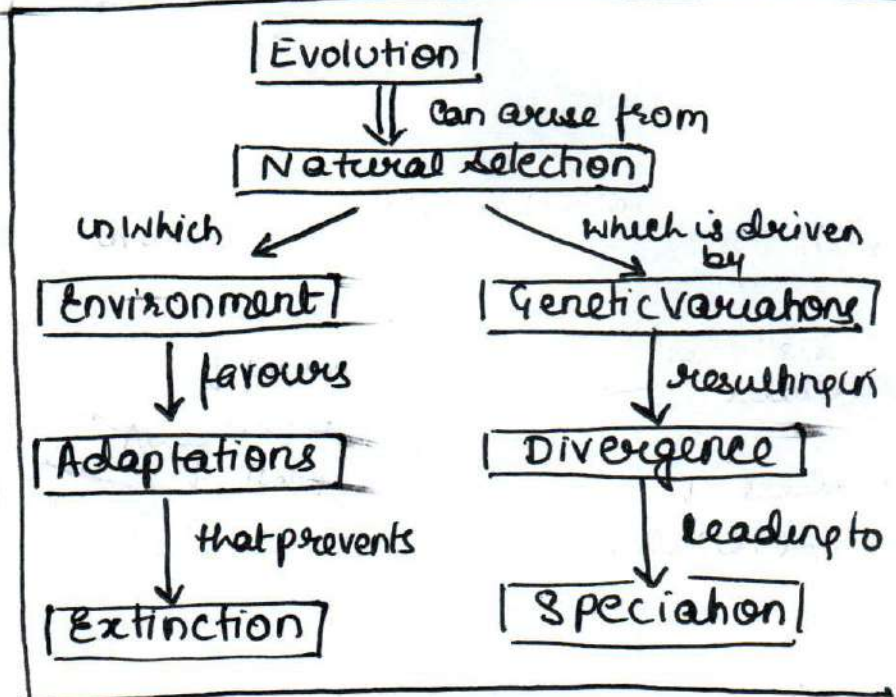 Evolution
Can arise from
Natural selection
in which
which is driven
by
Environment
Genetic Variations
favours
resulting in
Adaptations
Divergence
that prevents
Leading to
Extinction
Speciation